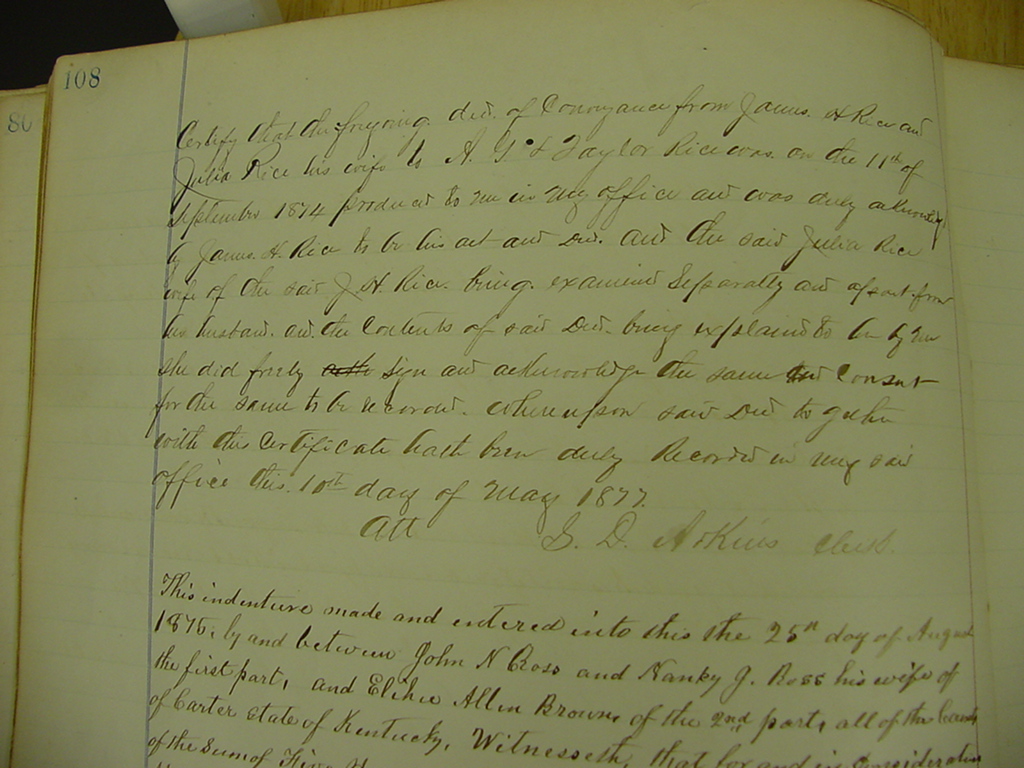 108
80
Certify that the fregoing deed. of Conveyance from James. H Rice and
Julia Rice his wife to A. G. & Taylor Rice was. on the 11th of
September 1874 produced to me in my office and was duly acknowledged
by James. H. Rice to be his act and Deed. and the said Julia Rice
wife of the said J. H. Rice. being. examined Seperatly and apart from
his husband. and. the Contents of said Deed. being explained to her by me
she did freely sign and acknowledge the same and Consent
for the same to be recorded. whereupon said Deed to gether
with this Certificate hath been duly Recorded in my said
office this. 10th day of May 1877.
Att S. D. Askins Clerk.
This indenture made and entered into this the 25th day of August
1875, by and between John N Ross and Nanky J. Ross his wife of
the first part, and Elihu Allen Browns of the 2nd part, all of the County
of Carter state of Kentucky, Witnesseth, that for and in Consideration
of the Sum of Five